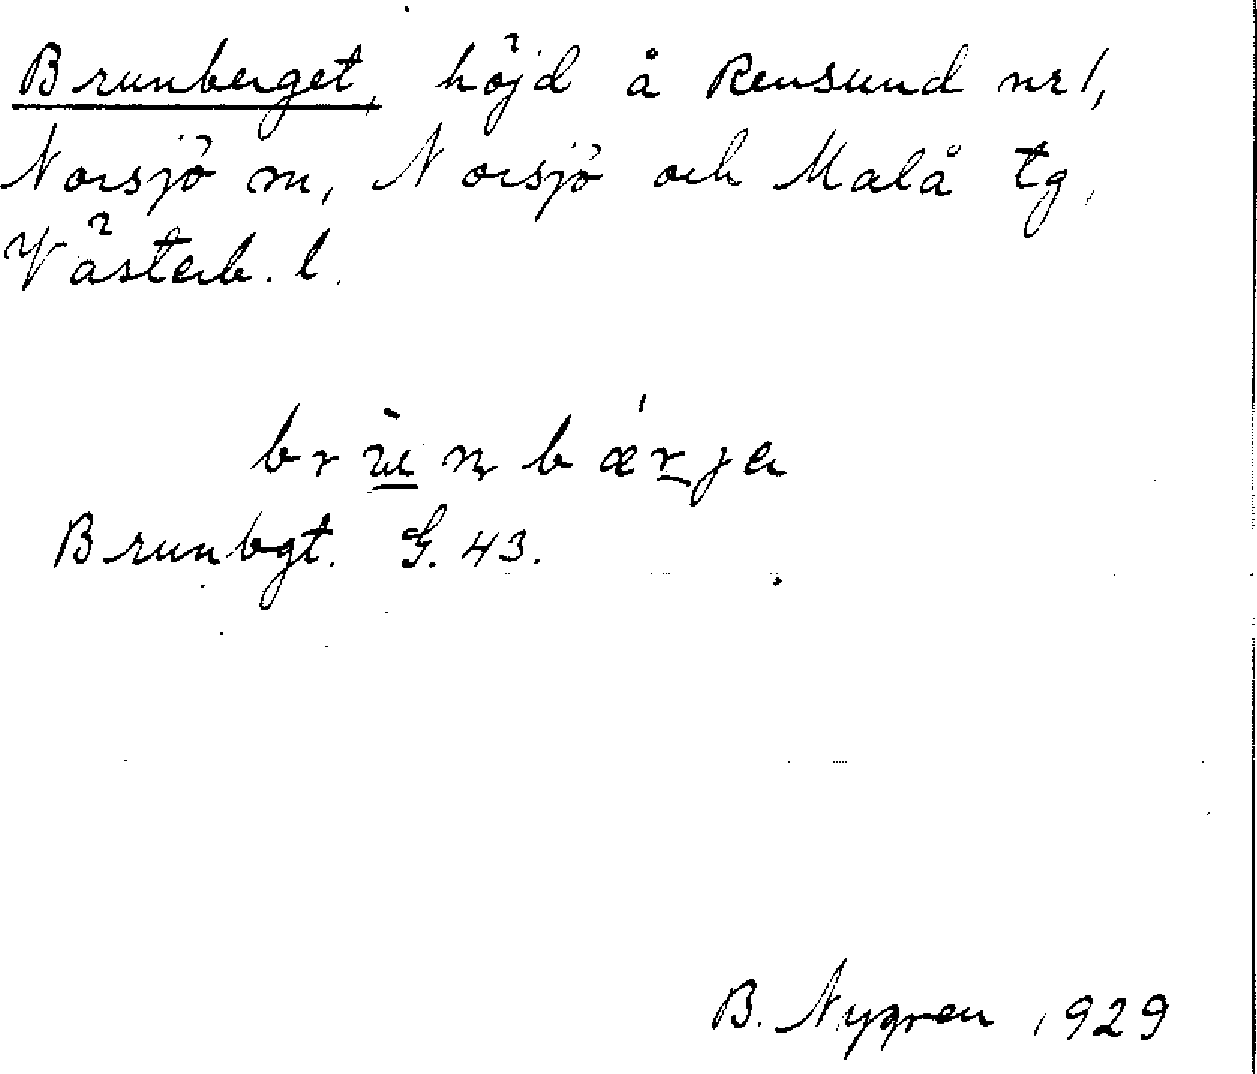 Brunberget, höjd å Rensund nr 1,
Norsjö m, Norsjö och Malå tg,
Västerb. l.
brùnbǽrja
Brunbgt. G. 43.
B. Nygren 1929